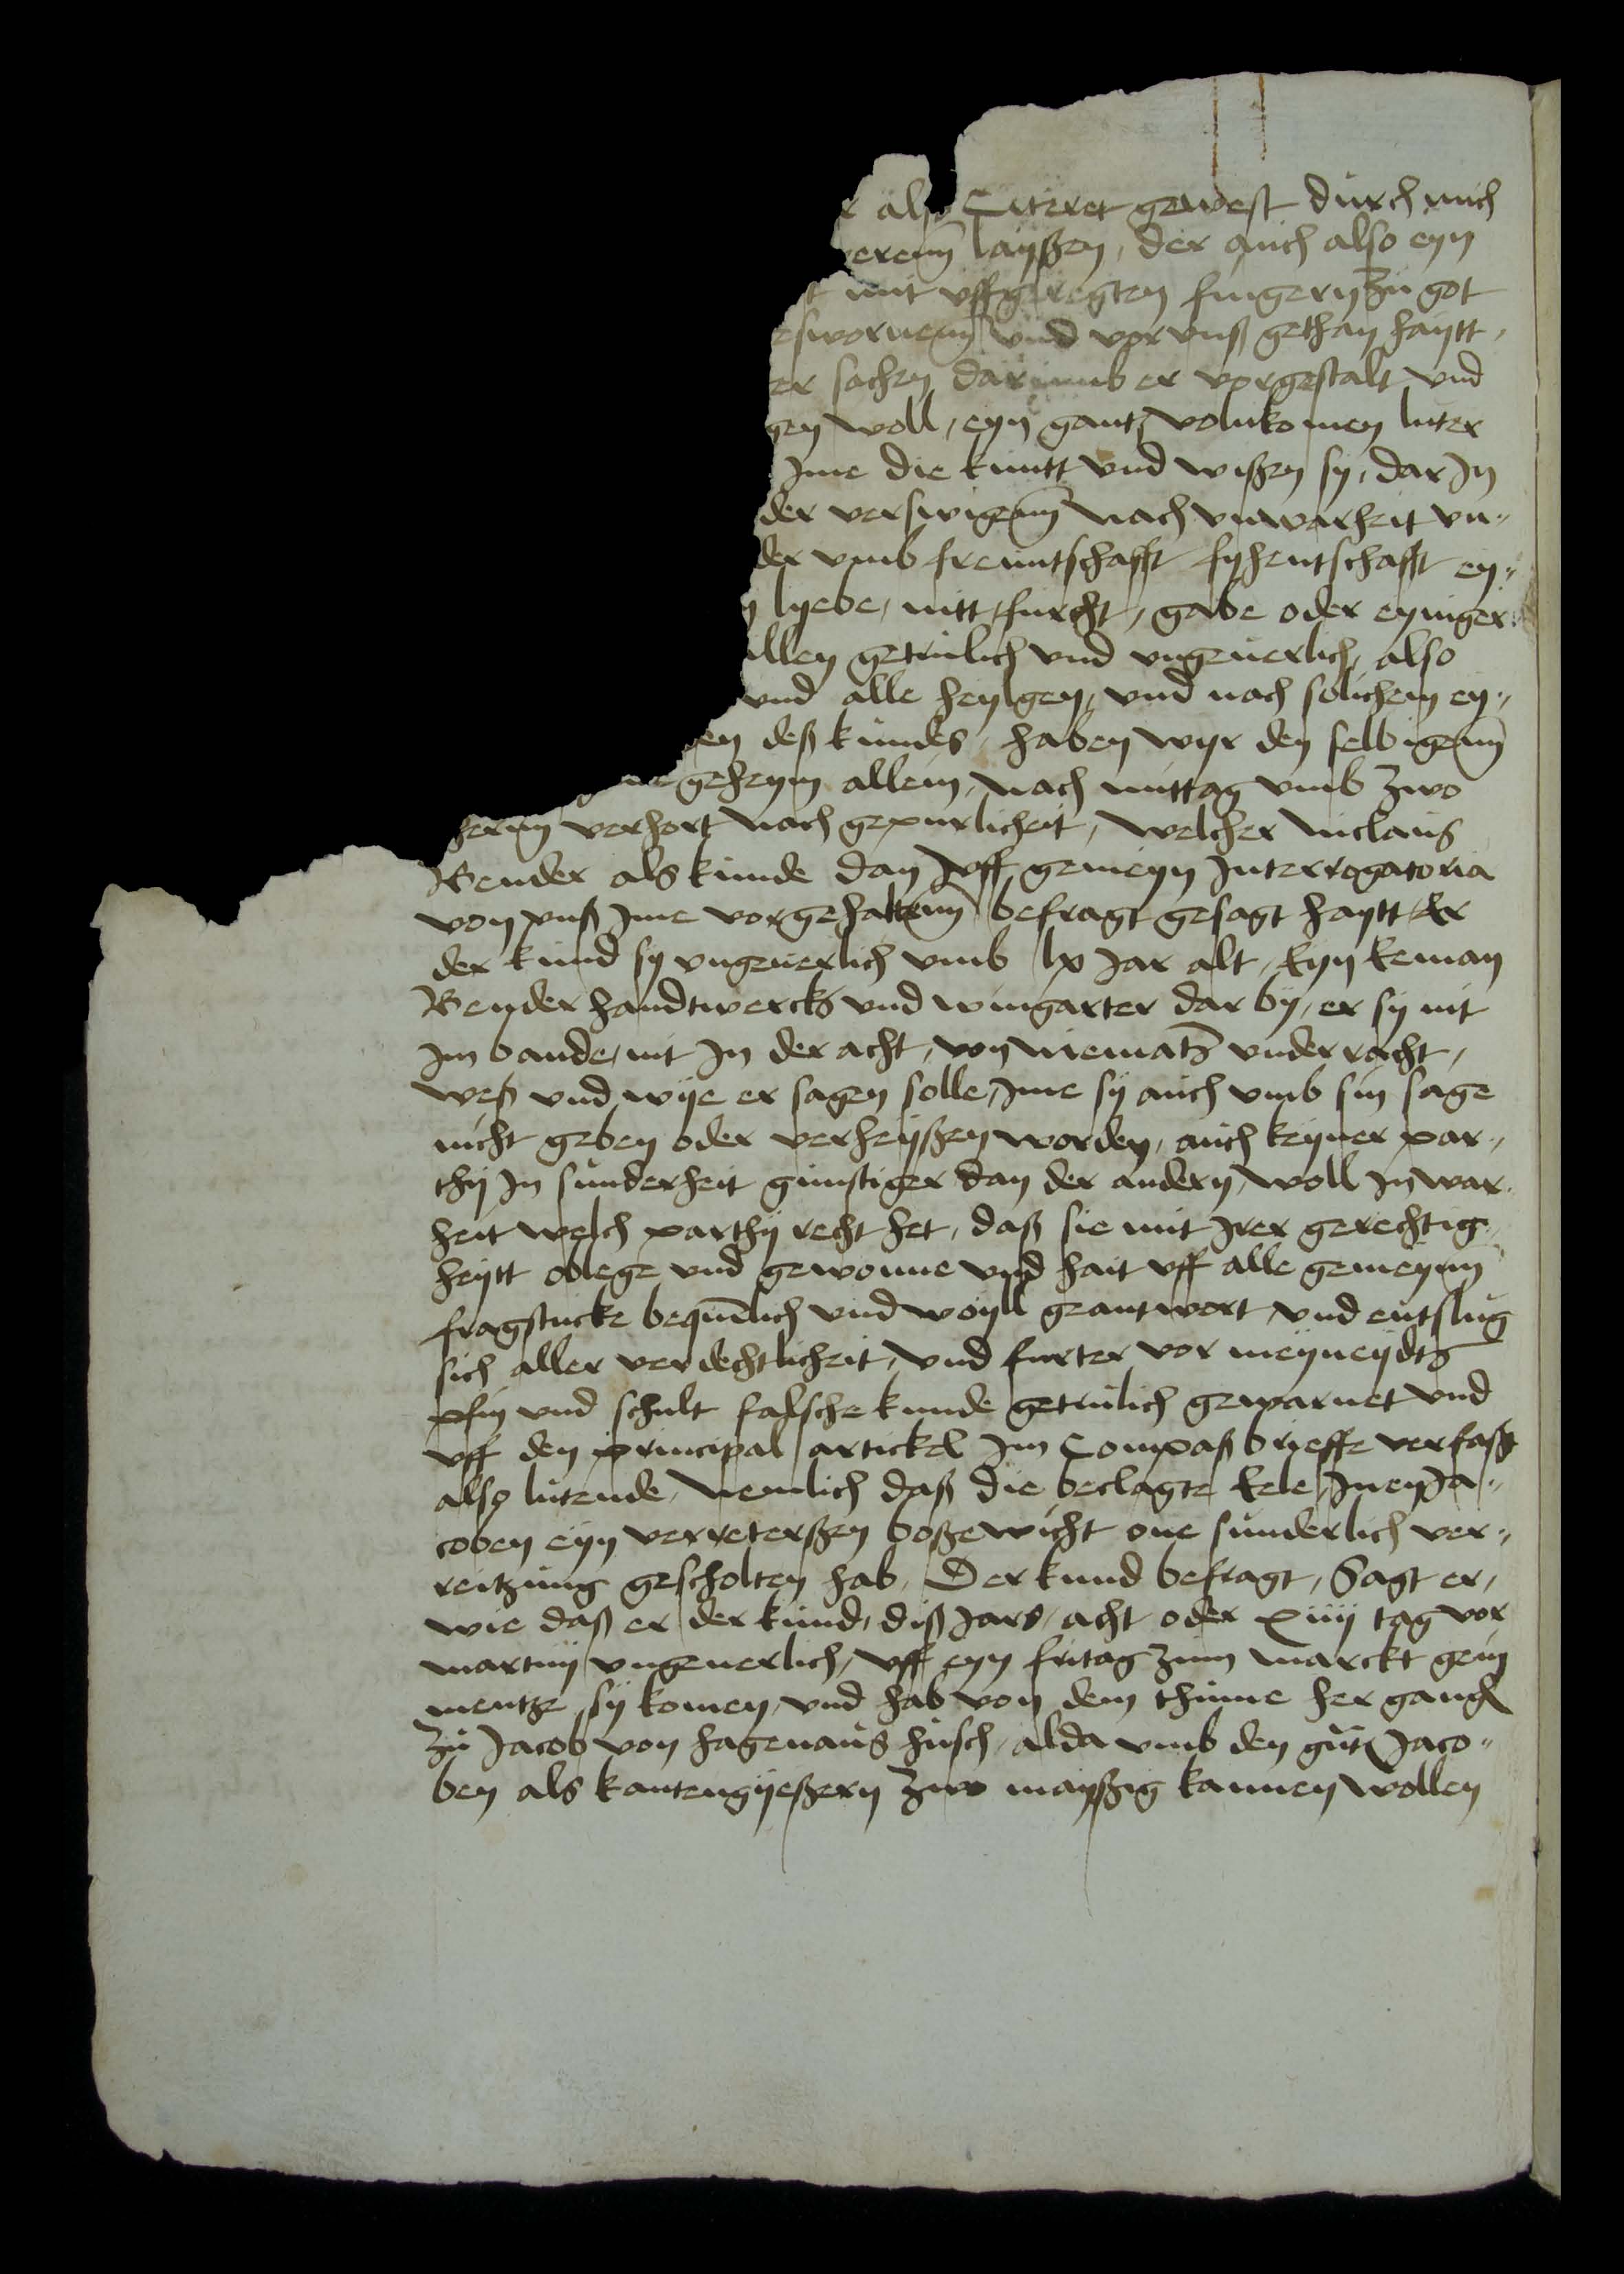 r also Citeret gewest durch mich
weren layßen, der auch also eyn
t mit vffgeregten fingern zu got
eswornenn vnd vor vnß gethan haytt,
er sachen dar vmb er vorgestalt vnd
gen woll, eyn gantz volnkomen luter
Jme die kuntt vnd wißen sy, dar Jn
der verswigenn nach vnwarheit vn„
der vmb freuntschafft fyhentschafft ey„
n lyebe, nitt, furcht, gabe oder eyniger
allen getrulich vnd vngeuerlich, also
vnd alle heylgen, vnd nach solichem ey„
en deß kundes, haben wyr den selbigenn
geheym allein, nach mittag vmb zwo
herenn verhort nach gepurlicheit, welcher niclaus
Bender als kunde dan vff gemeyn Jnterrogatoria
von vnß Jme vorgehaltenn befragt gesagt haytt, Er
der kund sy vngeuerlich vmb lx Jar alt, Eyn Eeman
Bender handtwercks vnd wingarter dar by, er sy nit
Jm bande, nit Jn der acht, von niematz vnderracht,
weß vnd wye er sagen solle, Jme sy auch vmb sin sage
nicht geben oder verheyßen worden, auch keyner par„
thy Jn sunderheit gunstiger dan der andern, woll Jn war„
heit welch parthy recht het, daß sie mit Jrer gerechtig„
heytt oblege vnd gewonne vnd hait vff alle gemeynn
fragstucke bequemlich vnd woyll geantwort, vnd entslug
sich aller verdechtlicheit, vnd furter vor meyneydts
pfin vnd schult falsche kunde getrulich gewarnet vnd
vff den principal artickel Jm Compaß brieffe verfaßt
also lutende, nemlich daß die beclagte Eele, Jnen Ja„
coben eyn verreterßen boßewicht one sunderlich ver„
reitzung gescholten hab, Der kund befragt, Sagt er,
wie daß er der kund, diß Jars, acht oder xiiij tag vor
martiny vngeuerlich, vff eyn fritag zum marckt gein
mentze sy komen, vnd hab von dem thume her gangen
zu Jacob von hagenaus husch, alda vmb den gut Jaco„
ben als kantengyeßern zwo mayßig kannen wollen